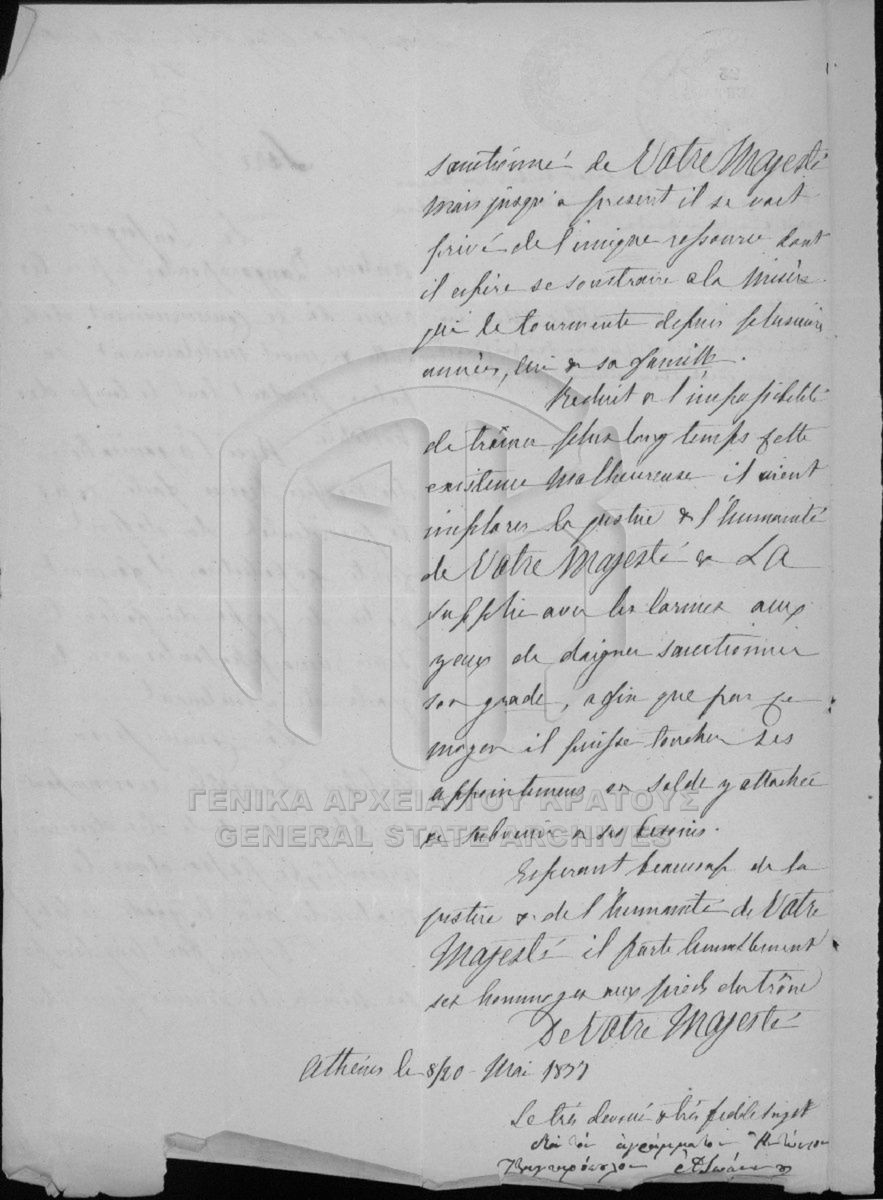 sanctionné de Votre Majesté
mais jusqu'a present il se voit
privé de l'unique ressource dont
il espère se soustraire a la misère
qui le tourmente depuis plusieurs
années, lui & sa famille.
Reduit a l'impossibilité
de traîner plus long temps cette
existence malheureuse il vient
implorer la justice & l'humanité
de Votre Majesté & LA
supplie avec les larmes aux
yeux de daigner sanctionner
son grade, afin que par ce
moyen il puisse toucher les
appointemens ou solde y attachée
et subvenir a ses besoins.
ΓΕΝΙΚΑ ΑΡΧΕΙΑ ΤΟΥ ΚΡΑΤΟΥΣ
GENERAL STATE ARCHIVES
Esperant beaucoup de la
justice & de l'humanité de Votre
Majesté il porte humblement
ses hommages aux pieds du trône
De Votre Majesté
Athénes le 8/20 Mai 1837
Le très devoué & très fidéle sujet
διὰ τὸν ἀγράμματον